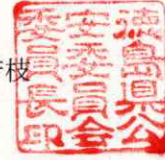 枝
徳島県公
安委員会
委員長印